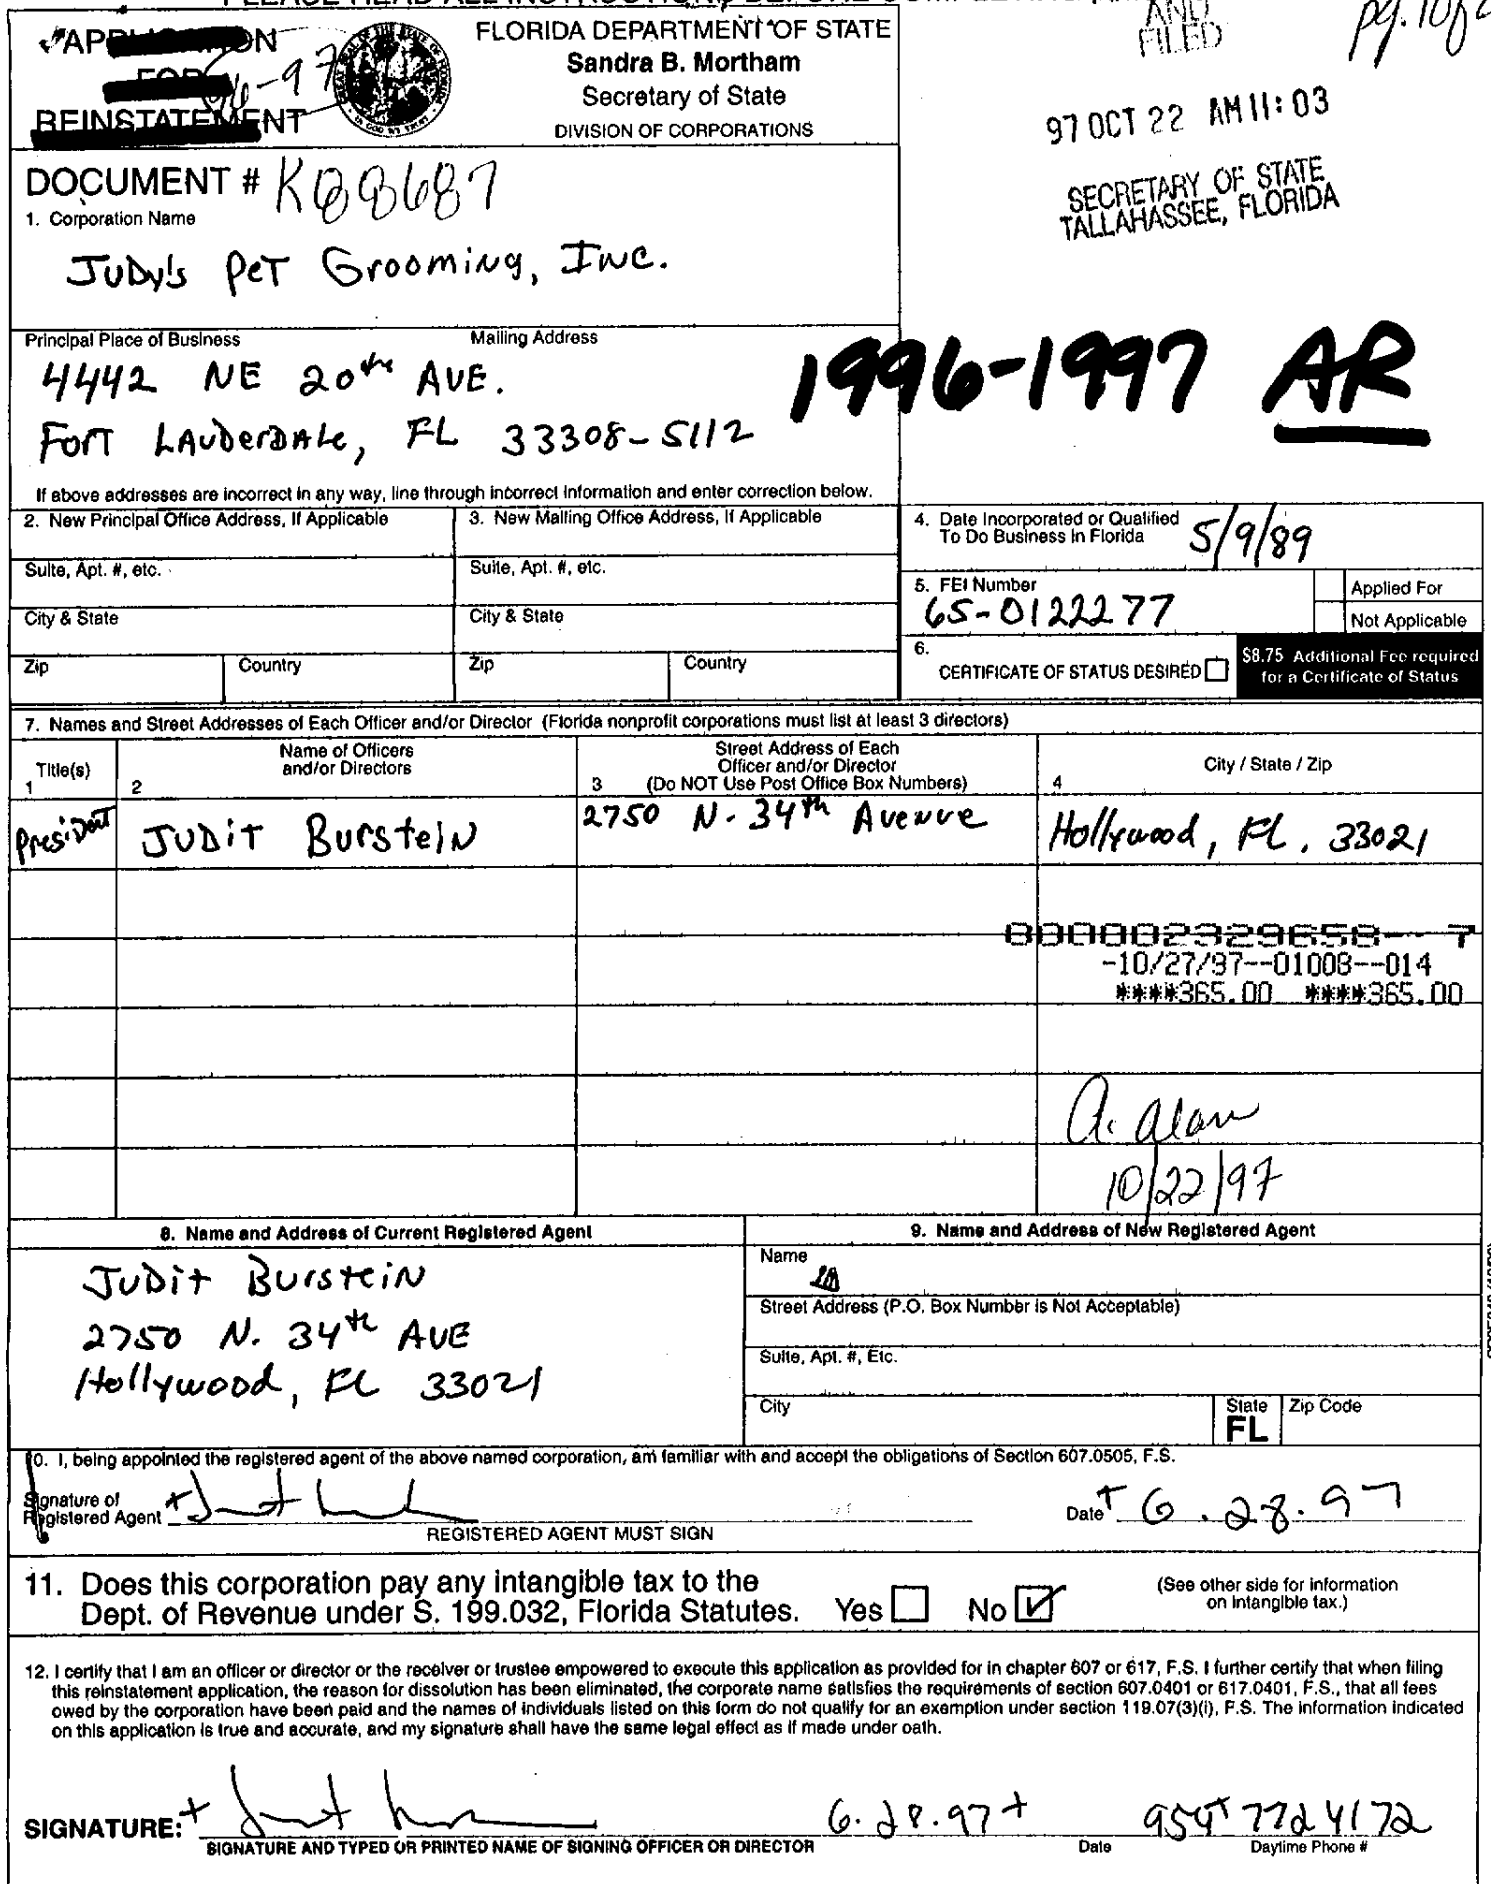 PLEASE READ ALL INSTRUCTIONS BEFORE
APPLICATION
FOR
REINSTATEMENT
96-97
FLORIDA DEPARTMENT OF STATE
Sandra B. Mortham
Secretary of State
DIVISION OF CORPORATIONS
AND
FILED
pg. 1 of 2
97 OCT 22 AM 11: 03
SECRETARY OF STATE
TALLAHASSEE, FLORIDA
DOCUMENT # K88687
1. Corporation Name
Judy's Pet Grooming, Inc.
Principal Place of Business Mailing Address
4442 NE 20th AVE.
Fort Lauderdale, FL 33308-5112
1996-1997 AR
If above addresses are incorrect in any way, line through incorrect information and enter correction below.
2. New Principal Office Address, If Applicable
3. New Mailing Office Address, If Applicable
Suite, Apt. #, etc.
Suite, Apt. #, etc.
City & State
City & State
Zip Country
Zip Country
4. Date Incorporated or Qualified
To Do Business in Florida 5/9/89
5. FEI Number
65-0122277
Applied For
Not Applicable
6.
CERTIFICATE OF STATUS DESIRED
$8.75 Additional Fee required
for a Certificate of Status
7. Names and Street Addresses of Each Officer and/or Director (Florida nonprofit corporations must list at least 3 directors)
Title(s)
1
Name of Officers
and/or Directors
2
Street Address of Each
Officer and/or Director
3 (Do NOT Use Post Office Box Numbers)
City / State / Zip
4
President Judit Burstein 2750 N. 34th Avenue Hollywood, FL. 33021
800002329658--7
-10/27/97--01008--014
****365.00 ****365.00
A. Alan
10/22/97
8. Name and Address of Current Registered Agent
Judit Burstein
2750 N. 34th AVE
Hollywood, FL 33021
9. Name and Address of New Registered Agent
Name
Street Address (P.O. Box Number is Not Acceptable)
Suite, Apt. #, Etc.
City
State
FL
Zip Code
10. I, being appointed the registered agent of the above named corporation, am familiar with and accept the obligations of Section 607.0505, F.S.
Signature of
Registered Agent
REGISTERED AGENT MUST SIGN
Date 6.28.97
11. Does this corporation pay any intangible tax to the
Dept. of Revenue under S. 199.032, Florida Statutes. Yes No
(See other side for information
on intangible tax.)
12. I certify that I am an officer or director or the receiver or trustee empowered to execute this application as provided for in chapter 607 or 617, F.S. I further certify that when filing
this reinstatement application, the reason for dissolution has been eliminated, the corporate name satisfies the requirements of section 607.0401 or 617.0401, F.S., that all fees
owed by the corporation have been paid and the names of individuals listed on this form do not qualify for an exemption under section 119.07(3)(i), F.S. The information indicated
on this application is true and accurate, and my signature shall have the same legal effect as if made under oath.
SIGNATURE: 6.28.97 954 772 4172
SIGNATURE AND TYPED OR PRINTED NAME OF SIGNING OFFICER OR DIRECTOR
Date
Daytime Phone #